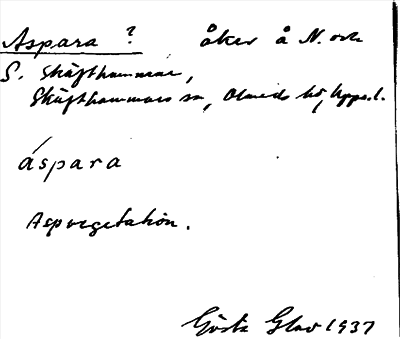 Aspara ? åker å N. och
S. Skäfthammar,
Skäfthammars sn, Olands hd, Upps. l.
áspara
Aspvegetation.
Gösta Glav 1937